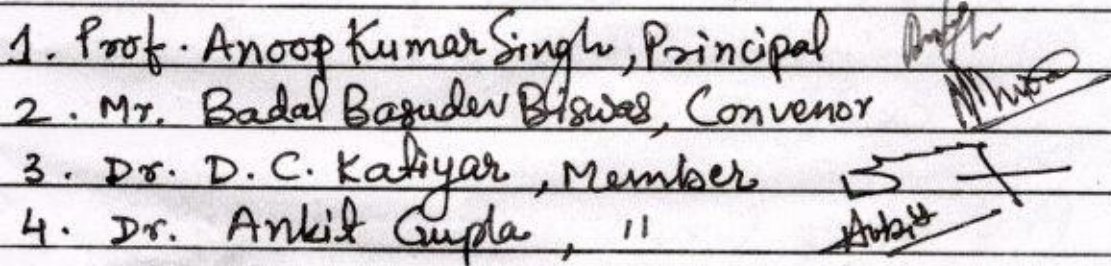 1. Prof. Anoop Kumar Singh, Principal
2. Mr. Badal Basudev Biswas, Convenor
3. Dr. D. C. Katiyar, Member
4. Dr. Ankit Gupta, " Ankit